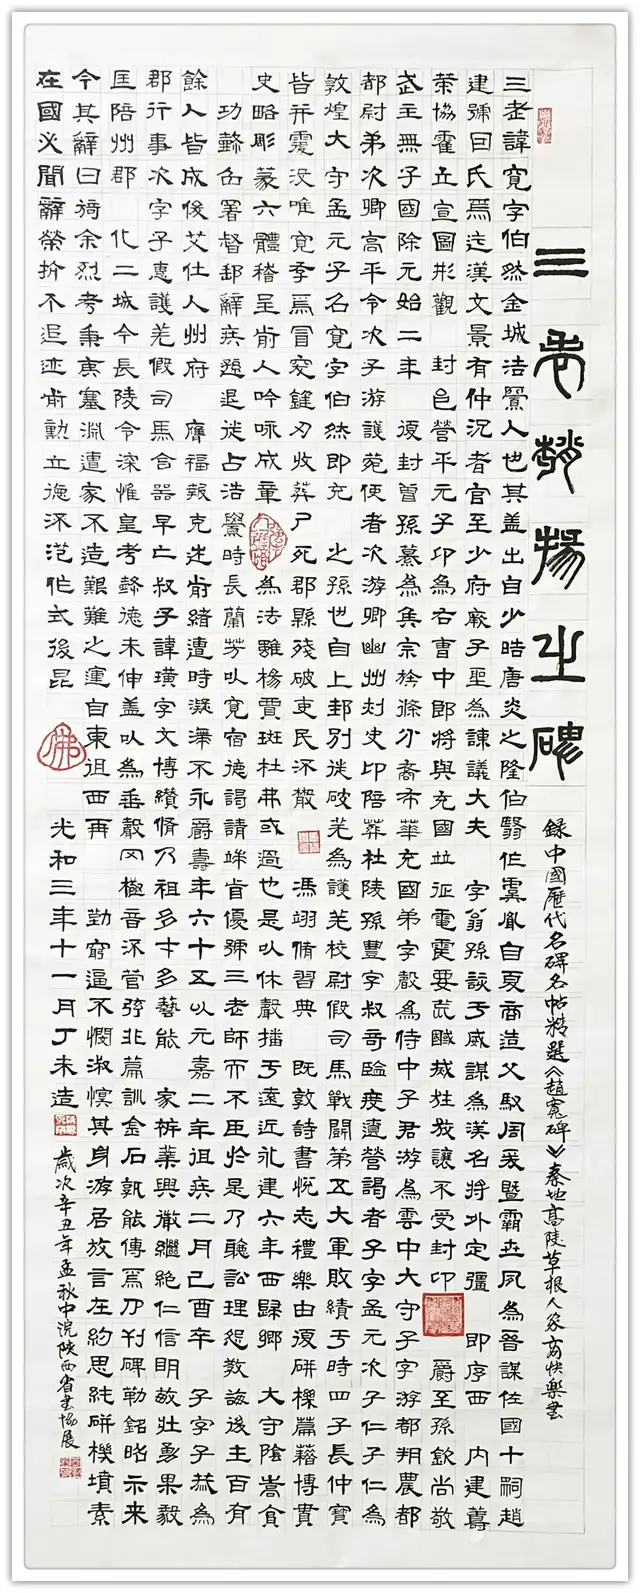 三老趙掾之碑
錄中國歷代名碑名帖精選《趙寬碑》秦地高陵草根人家商快樂書
三老諱寬字伯然金城浩亹人也其蓋出自少晧唐炎之隆伯翳作虞胤自夏商造父馭周爰暨霸世夙為晉謀佐國十嗣趙
建號因氏焉迄漢文景有仲況者官至少府厥子聖為諫議大夫 字翁孫該于威謀為漢名將外定彊 即序西 內建籌
策協霍立宣圖形觀 封邑營平元子卬為右曹中郎將與充國並征電震要荒馘滅狂狡讓不受封卬 爵至孫欽尚敬
武主無子國除元始二年 復封曾孫纂為侯宗族條分裔布華充國弟字轂為侍中子君游為雲中大守子字游都朔農都
都尉弟次卿高平令次子游護菀使者次游卿幽州刺史卬陪葬杜陵孫豐字叔奇監度遼營謁者子字孟元次子仁子仁為
敦煌大守孟元子名寬字伯然即充 之孫也自上邽別徙破羌為護羌校尉假司馬戰鬭第五大軍敗績于時四子長仲寶
皆并覆沒唯寬存焉冒突鋒刃收葬尸死郡縣殘破吏民流散 馮翊脩習典 既敦詩書悅志禮樂由復研機篇籍博貫
史略彫篆六體稽呈前人吟咏成章 為法雖楊賈斑杜弗或過也是以休聲播于遠近永建六年西歸鄉 大守陰嵩貪
功懿名署督郵辭疾遜退徙占浩亹時長蘭芳以寬宿德謁請端首優號三老師而不臣於是乃聽訟理怨教誨後生百有
餘人皆成俊艾仕人州府 序福報克述前緒遭時凝滯不永爵壽年六十五以元嘉二年徂疾二月己酉卒 子字子恭為
郡行事次字子惠護羌假司馬含器早亡叔子諱璜字文博纘脩乃祖多才多藝能 家祈業興微繼絕仁信明敏壯勇果毅
匡陪州郡 化二城今長陵令深惟皇考懿德未伸蓋以為垂聲罔極音流管弦非篇訓金石孰能傳焉乃刊碑勒銘昭示來
今其辭曰猗余烈考秉夷塞淵遭家不造艱難之運自東徂西再 勤窮逼不憫淑慎其身游居放言在約思純研機墳素
在國必聞辭榮抗不追迹前勳立德流范作式後昆 光和三年十一月丁未造
歲次辛丑年孟秋中浣陝西省書協展
佛